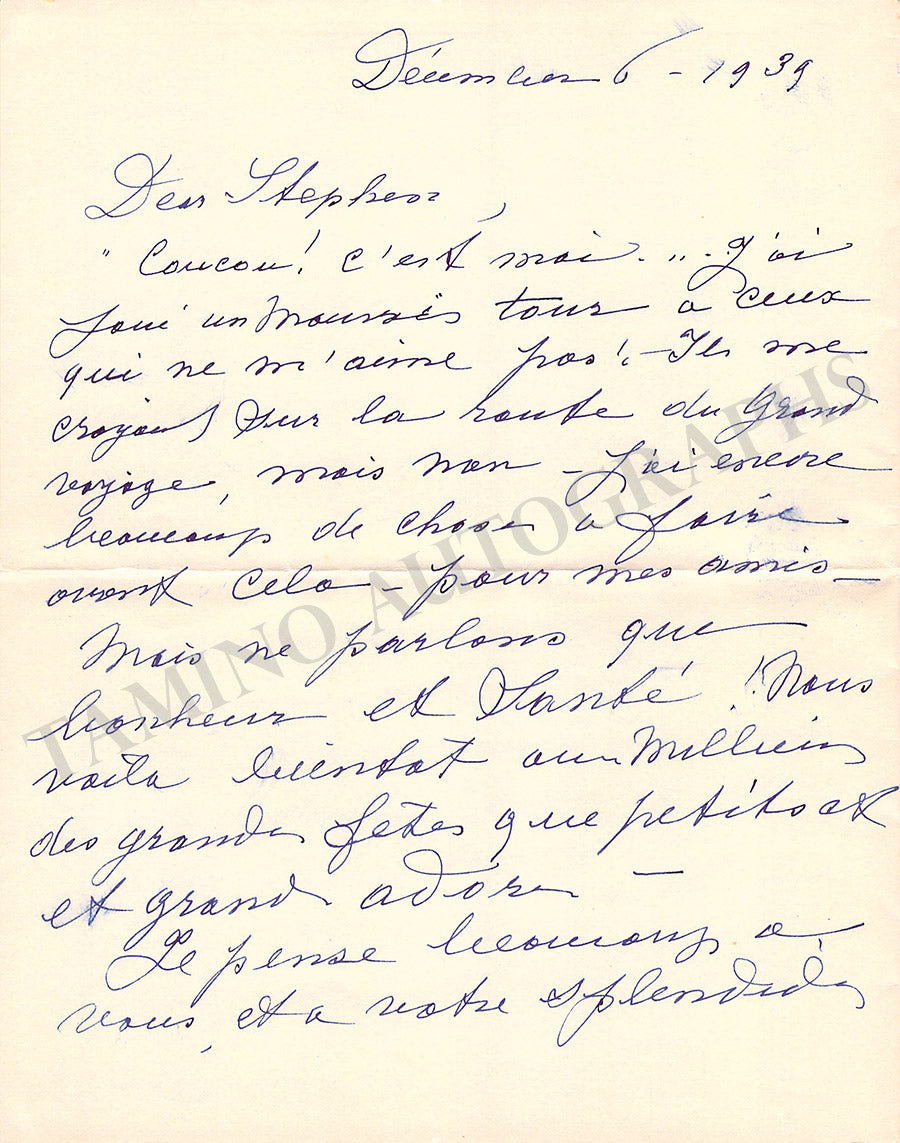 Décember 6 - 1939
Dear Stephen,
" Coucou! c'est moi . .. . J'ai
joué un mauvais tour a ceux
qui ne m'aime pas! - Ils me
croyent sur la route du Grand
voyage, mais non - J'ai encore
beaucoup de chose a faire
avant cela - pour mes amis -
Mais ne parlons que
bonheur et Santé !! Nous
voila bientot au Millieu
des grandes fetes que petits et
et grand adore -
Je pense beaucoup a
vous, et a votre splendide
TAMINO AUTOGRAPHS